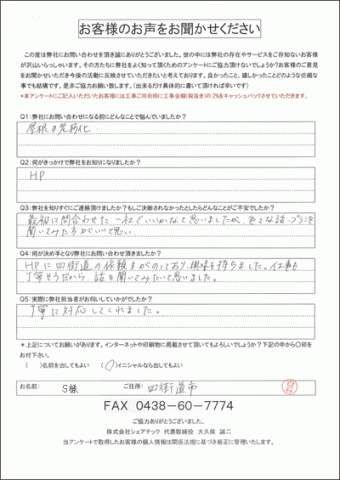 お客様のお声をお聞かせください
この度は弊社にお問い合わせを頂き誠にありがとうございました。世の中には弊社の存在やサービスをご存知ないお客様
が沢山いらっしゃいます。その方たちに弊社をよく知って頂くためのアンケートにご協力頂けないでしょうか？お客様のご意見
をお聞かせいただき今後の活動に反映させていただきたいと考えております。良かったこと、嬉しかったことどのような些細な
事でも結構です。是非ご協力お願い致します。（出来るだけ具体的に書いて頂ければ幸いです）
＊本アンケートにご記入いただいたお客様には工事ご用命時に工事金額（税抜き）の2%をキャッシュバックさせていただきます。
Q1：弊社にお問い合わせになる前にどんなことで悩んでいましたか？
屋根の劣化
Q2：何がきっかけで弊社をお知りになりましたか？
HP
Q3：弊社を知りすぐにご連絡頂けましたか？もしご決断されなかったとしたらどんなことがご不安でしたか？
最初に問合わせた一社でいいかなと思いましたが、色々な話、プランを
聞いてみた方がいいと思い
Q4：何が決め手となり弊社にお問い合わせ頂きましたか？
HPに四街道の依頼ものっており、興味を持ちました。仕事も
丁寧そうだから話を聞いてみたいと思いました。
Q5：実際に弊社担当者がお伺いしていかがでしたか？
丁寧に対応してくれました。
＊上記についてお願いがあります。インターネットや印刷物に掲載させて頂いてもよろしいでしょうか？下記の中から〇印を
お付下さい。
（　）名前を出してもよい　（〇）イニシャルなら出してもよい
お名前： S様 ご住所： 四街道市
FAX 0438-60-7774
ご協力ありがとうございました。
株式会社シェアテック 代表取締役 大久保 誠二
当アンケートで取得したお客様の個人情報は関係法規に基づき厳正に管理いたします。